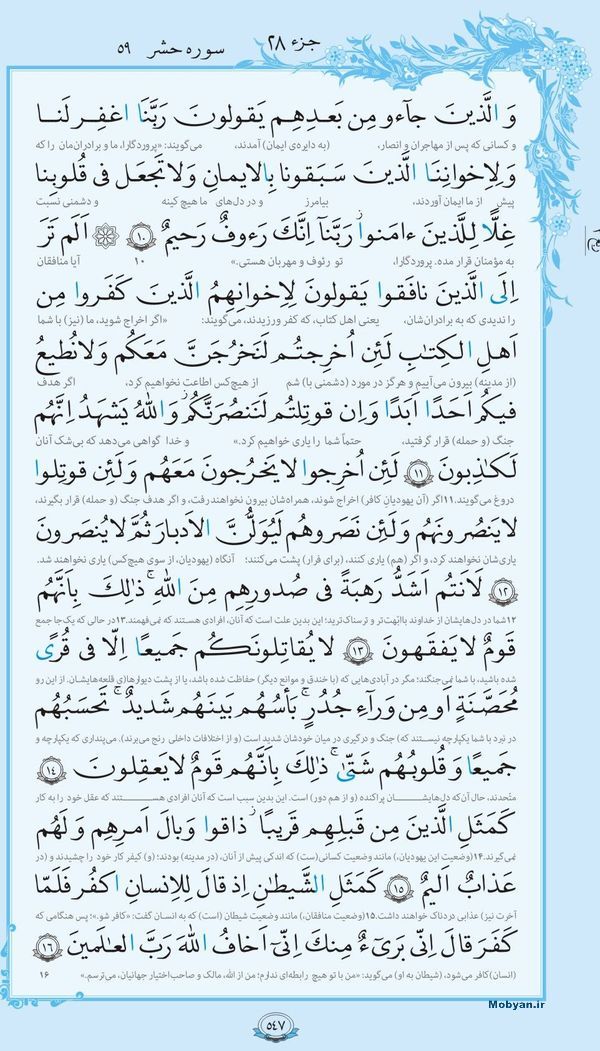 جزء ۲۸ سوره حشر ۵۹
وَ الَّذينَ جآءو مِن بَعدِهِم يَقولونَ رَبَّنَا اغفِر لَنا
و کسانی که پس از مهاجران و انصار، (به دایره‌ی ایمان) آمدند، می‌گویند: «پروردگارا، ما و برادران‌مان را که
وَ لِاِخوانِنَا الَّذينَ سَبَقونا بِالايمانِ وَ لا تَجعَل فى قُلوبِنا
پیش از ما ایمان آوردند، بیامرز و در دل‌های ما هیچ کینه و دشمنی نسبت
غِلًّا لِلَّذينَ ءامَنوا رَبَّنآ اِنَّكَ رَءوفٌ رَحيمٌ ۱۰ اَلَم تَرَ
به مؤمنان قرار مده. پروردگارا، تو رئوف و مهربان هستی.» ۱۰ آیا منافقان
اِلَى الَّذينَ نافَقوا يَقولونَ لِاِخوانِهِمُ الَّذينَ كَفَروا مِن
را ندیدی که به برادران‌شان، یعنی اهل کتاب، که کفر ورزیدند، می‌گویند: «اگر اخراج شوید، ما (نیز) با شما
اَهلِ الكِتٰبِ لَئِن اُخرِجتُم لَنَخرُجَنَّ مَعَكُم وَ لا نُطيعُ
(از مدینه) بیرون می‌آییم و هرگز در مورد (دشمنی با) شما از هیچ‌کس اطاعت نخواهیم کرد، اگر هدف
فيكُم اَحَدًا اَبَدًا وَ اِن قوتِلتُم لَنَنصُرَنَّكُم وَ اللهُ يَشهَدُ اِنَّهُم
جنگ (و حمله) قرار گرفتید، حتماً شما را یاری خواهیم کرد.» و خدا گواهی می‌دهد که بی‌شک آنان
لَكٰذِبونَ ۱۱ لَئِن اُخرِجوا لا يَخرُجونَ مَعَهُم وَ لَئِن قوتِلوا
دروغ می‌گویند.۱۱ اگر (آن یهودیان کافر) اخراج شوند، همراه‌شان بیرون نخواهند رفت، و اگر هدف جنگ (و حمله) قرار بگیرند،
لا يَنصُرونَهُم وَ لَئِن نَصَروهُم لَيُوَلُّنَّ الاَدبارَ ثُمَّ لا يُنصَرونَ
یاری‌شان نخواهند کرد، و اگر (هم) یاری کنند، (برای فرار) پشت می‌کنند؛ آنگاه (یهودیان، از سوی هیچ‌کس) یاری نخواهند شد.
۱۲ لَاَنتُم اَشَدُّ رَهبَةً فى صُدورِهِم مِنَ اللهِ ذٰلِكَ بِاَنَّهُم
۱۲شما در دل‌هایشان از خداوند باابّهت‌تر و ترسناک‌ترید؛ این بدین علت است که آنان، افرادی هستند که نمی‌فهمند.۱۳در حالی که یک‌جا جمع
قَومٌ لا يَفقَهونَ ۱۳ لا يُقاتِلونَكُم جَميعًا اِلّا فى قُرًى
شده باشید، با شما نمی‌جنگند؛ مگر در آبادی‌هایی که (با خندق و موانع دیگر) حفاظت شده باشد، یا از پشت دیوارها(ی قلعه‌هایشان. از این رو
مُحَصَّنَةٍ اَو مِن وَرآءِ جُدُرٍ بَأسُهُم بَينَهُم شَديدٌ تَحسَبُهُم
در نبرد با شما یکپارچه نیستند که) جنگ و درگیری در میان خودشان شدید است (و از اختلافات داخلی رنج می‌برند). می‌پنداری که یکپارچه و
جَميعًا وَ قُلوبُهُم شَتّىٰ ذٰلِكَ بِاَنَّهُم قَومٌ لا يَعقِلونَ ۱۴
متّحدند، حال آن‌که دل‌هایشان پراکنده (و از هم دور) است. این بدین سبب است که آنان افرادی هستند که عقل خود را به کار
كَمَثَلِ الَّذينَ مِن قَبلِهِم قَريبًا ذاقوا وَبالَ اَمرِهِم وَ لَهُم
نمی‌گیرند.۱۴(وضعیت این یهودیان،) مانند وضعیت کسانی(ست) که اندکی پیش از آنان، (در مدینه) بودند؛ (و) کیفر کار خود را چشیدند و (در
عَذابٌ اَليمٌ ۱۵ كَمَثَلِ الشَّيطٰنِ اِذ قالَ لِلاِنسانِ اكفُر فَلَمّا
آخرت نیز) عذابی دردناک خواهند داشت.۱۵(وضعیت منافقان،) مانند وضعیت شیطان (است) که به انسان گفت: «کافر شو.»؛ پس هنگامی که
كَفَرَ قالَ اِنّى بَرىءٌ مِنكَ اِنّى اَخافُ اللهَ رَبَّ العٰلَمينَ ۱۶
(انسان) کافر می‌شود، (شیطان به او) می‌گوید: «من با تو هیچ رابطه‌ای ندارم؛ من از الله، مالک و صاحب‌اختیار جهانیان، می‌ترسم.» ۱۶
Mobyan.ir
۵۴۷